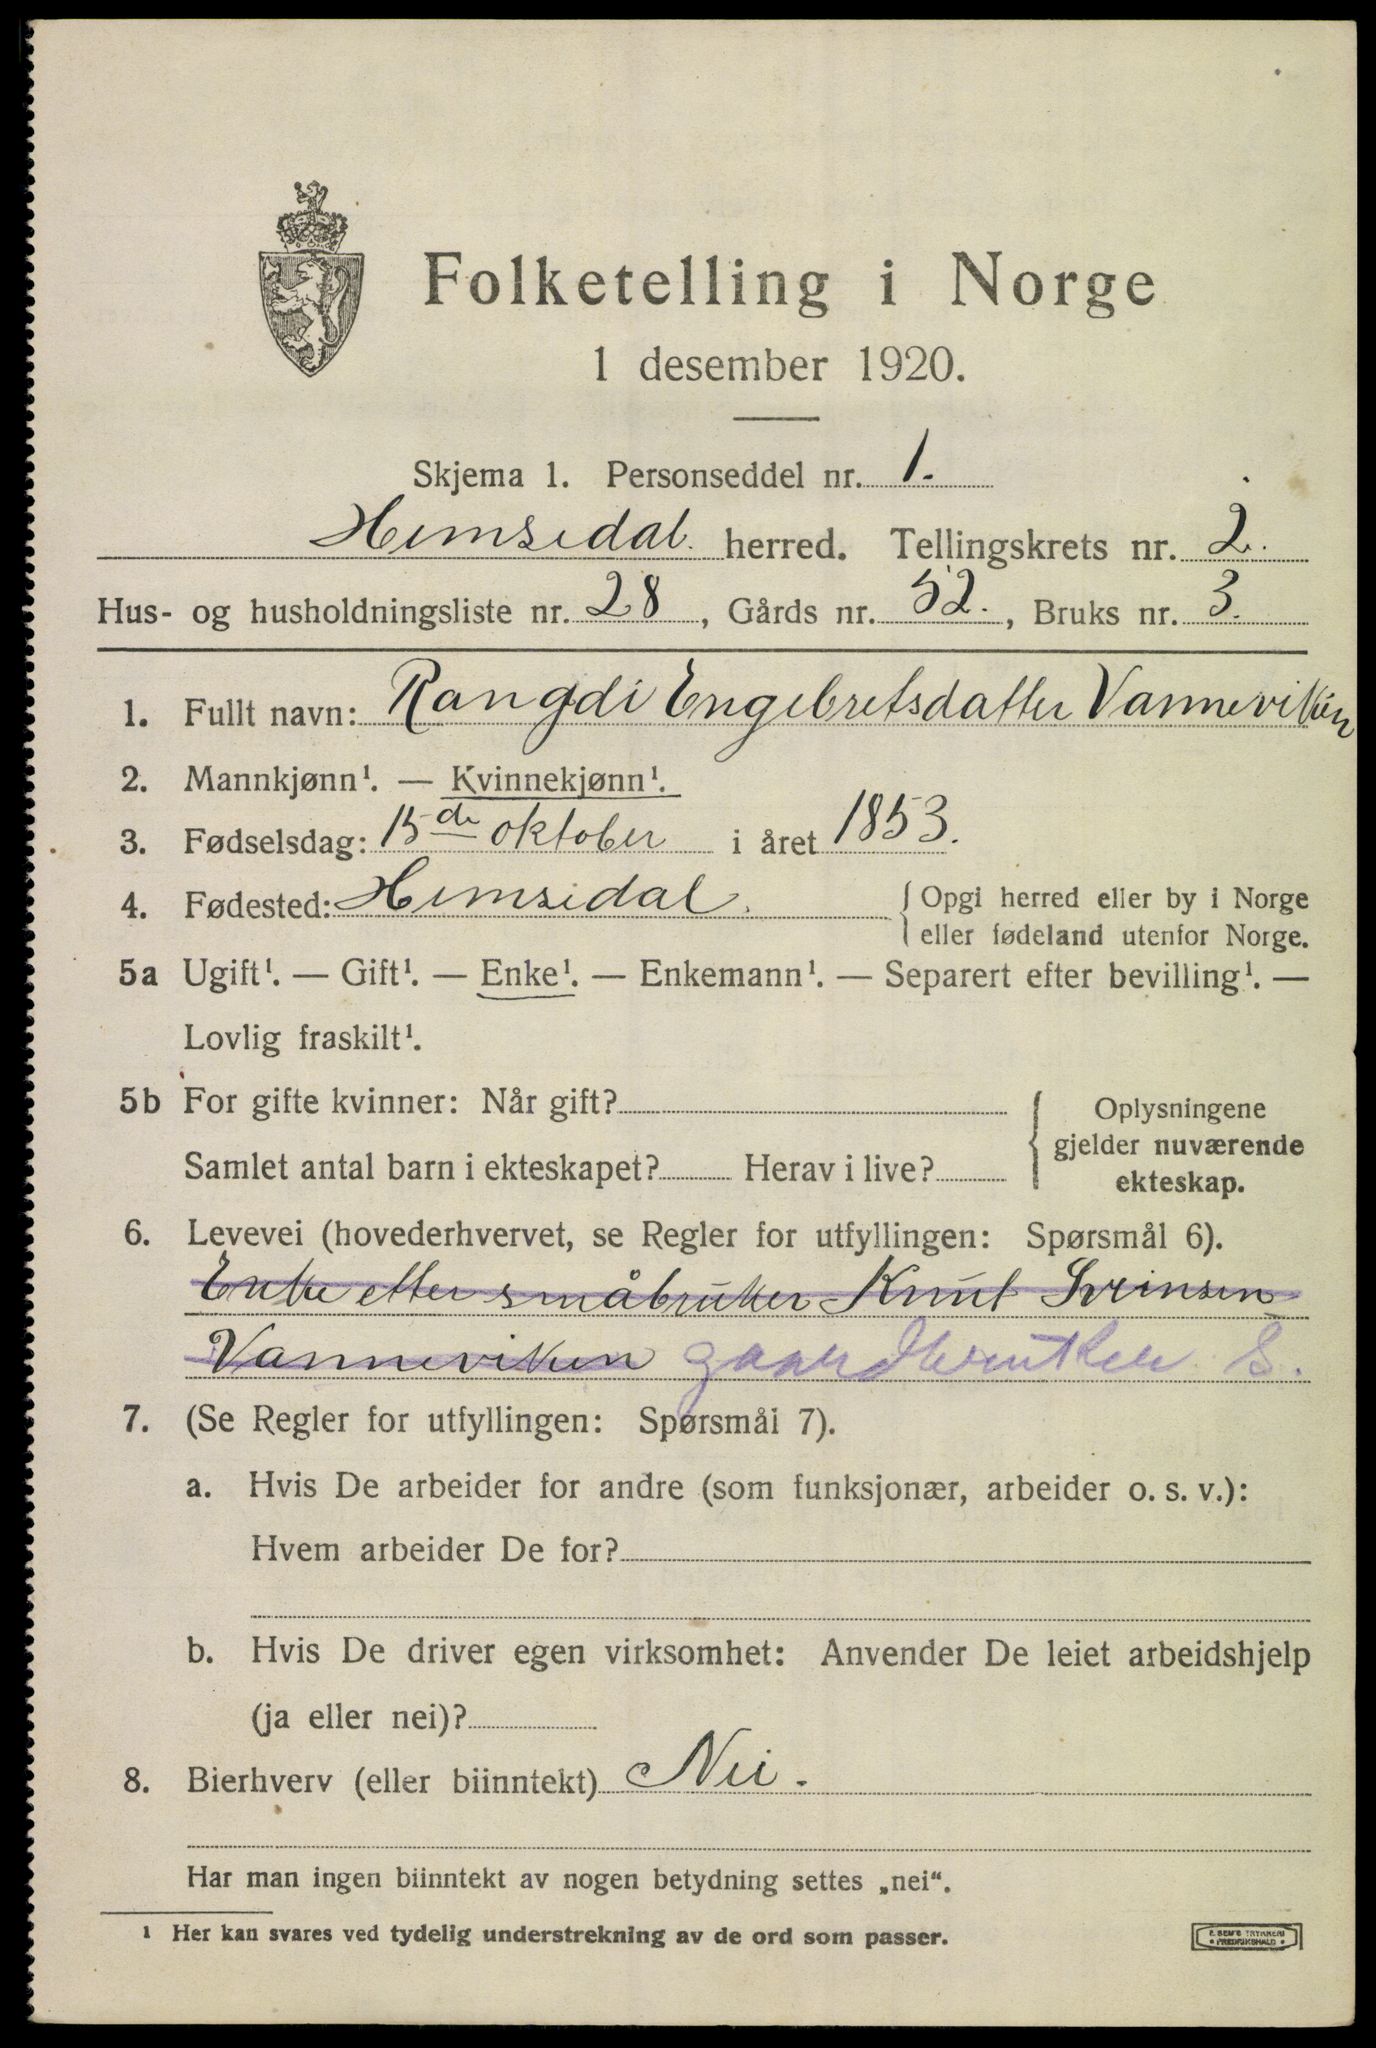 Folketelling i Norge
1 desember 1920.
Skjema 1. Personseddel nr. 1.
Hemsedal herred. Tellingskrets nr. 2.
Hus- og husholdningsliste nr. 28, Gårds nr. 52., Bruks nr. 3.
1. Fullt navn: Rangdi Engebretsdatter Vanneviken
2. Mannkjønn¹. — Kvinnekjønn¹.
3. Fødselsdag: 15de oktober i året 1853.
4. Fødested: Hemsedal. Opgi herred eller by i Norge
eller fødeland utenfor Norge.
5a Ugift¹. — Gift¹. — Enke¹. — Enkemann¹. — Separert efter bevilling¹. —
Lovlig fraskilt¹.
5b For gifte kvinner: Når gift? Oplysningene
gjelder nuværende
Samlet antal barn i ekteskapet? Herav i live? ekteskap.
6. Levevei (hovederhvervet, se Regler for utfyllingen: Spørsmål 6).
Enke etter småbruker Knut Sveinsen
Vanneviken gaardbruker S.
7. (Se Regler for utfyllingen: Spørsmål 7).
a. Hvis De arbeider for andre (som funksjonær, arbeider o. s. v.):
Hvem arbeider De for?
b. Hvis De driver egen virksomhet: Anvender De leiet arbeidshjelp
(ja eller nei)?
8. Bierhverv (eller biinntekt) Nei.
Har man ingen biinntekt av nogen betydning settes „nei“.
¹ Her kan svares ved tydelig understrekning av de ord som passer.
E. SEM'S TRYKKERI
FREDRIKSHALD